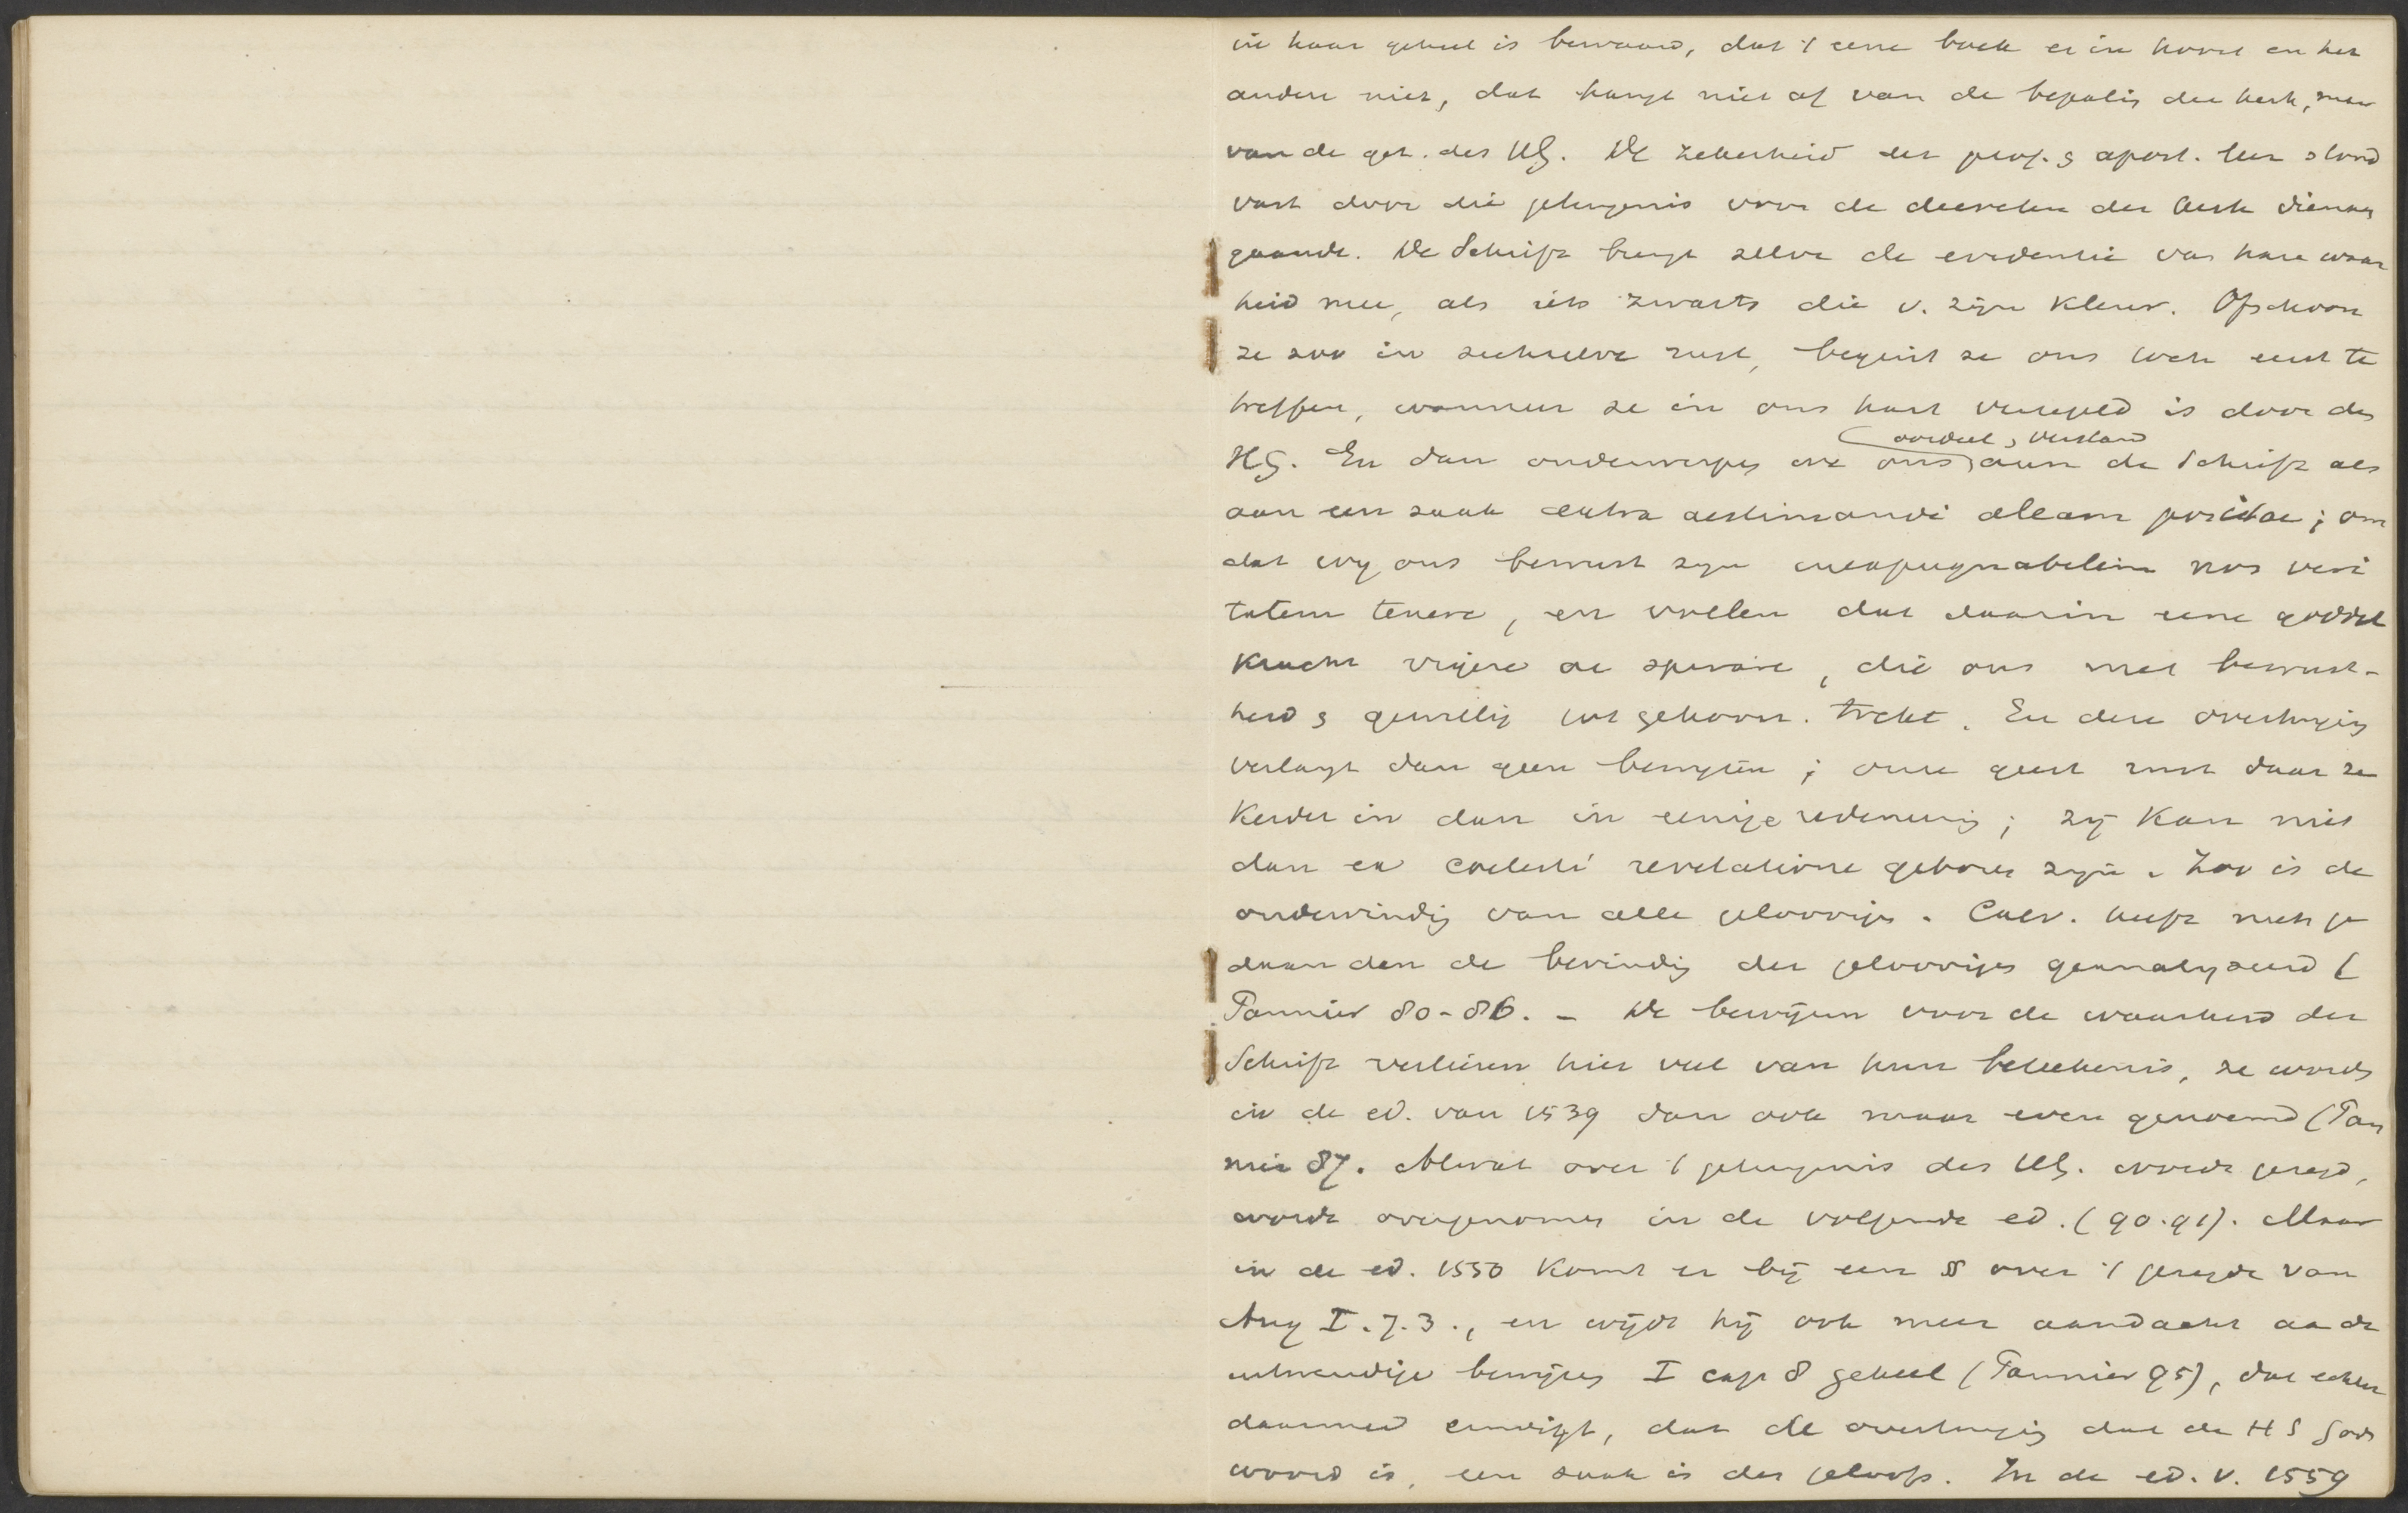 in haar geheel is bewaard, dat 't eene boek er in hoort en het
andere niet, dat hangt niet af van de bepaling der kerk, maar
van de get. des HG. De zekerheid der prof. & apost. leer stond
vast door die getuigenis voor de decreten der kerk dienaan
gaande. De Schrift brengt zelve de evidentie van hare waar
heid mee, als iets zwarts die v. zijn kleur. Ofschoon
ze zoo in zichzelve rust, begint ze ons toch eerst te
treffen, wanneer ze in ons hart verzegeld is door den
HG. En dan onderwerpen we ons oordeel & verstand aan de Schrift als
aan een zaak extra aestimandi aleam positae; om
dat wij ons bewust zijn inexpugnabilem nos veri
tatem tenere, en voelen dat daarin eene goddel
kracht vigere ac spirare, die ons met bewust-
heid & gewillig tot gehoorz. trekt. En deze overtuiging
verlangt dan geen bewijzen; onze geest rust daar ze
kerder in dan in eenige redeneering; zij kan niet
dan ex coelesti revelatione geboren zijn. Zoo is de
ondervinding van alle geloovigen. Calv. heeft niets ge
daan dan de bevinding der geloovigen geanalyseerd (
Pannier 80-86. - De bewijzen voor de waarheid der
Schrift verliezen hier veel van hun beteekenis, ze worden
in de ed. van 1539 dan ook maar even genoemd (Pan
nier 87. Alwat over 't getuigenis des HG. wordt gezegd,
wordt overgenomen in de volgende ed. (90.91). Maar
in de ed. 1550 komt er bij een § over 't gezegde van
Aug I.7.3., en wijdt hij ook meer aandacht aan de
uitwendige bewijzen I cap 8 geheel (Pannier 95), dat echter
daarmed eindigt, dat de overtuiging dat de HS Gods
woord is, een zaak is des geloofs. In de ed. v. 1559